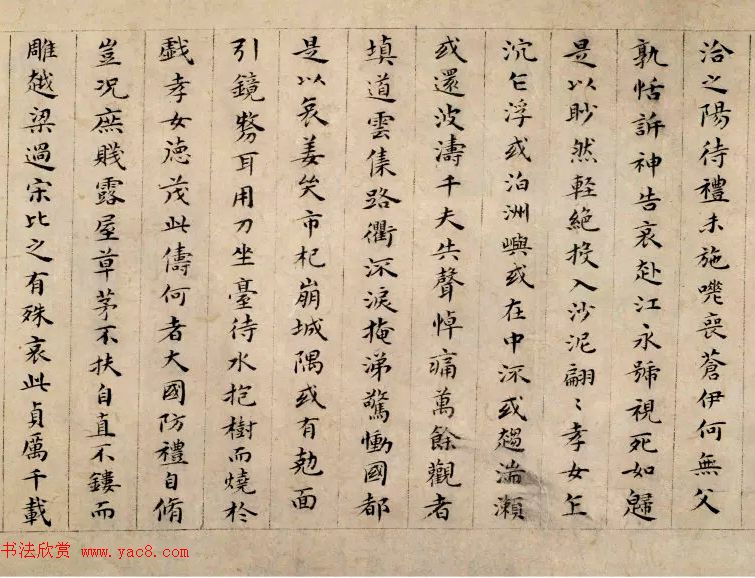 洽之陽待禮未施嗟喪蒼伊何無父
孰怙訴神告哀赴江永號視死如歸
是以眇然輕絕投入沙泥翩〻孝女乍
沉乍浮或泊洲嶼或在中流或趨湍瀨
或還波濤千夫共聲悼痛萬餘觀者
填道雲集路衢流淚掩涕驚慟國都
是以哀姜哭市杞崩城隅或有剋面
引鏡剺耳用刀坐臺待水抱樹而燒於
戲孝女德茂此儔何者大國防禮自脩
豈況庶賤露屋草茅不扶自直不鏤而
雕越梁過宋比之有殊哀此貞厲千載
书法欣赏 www.yac8.com